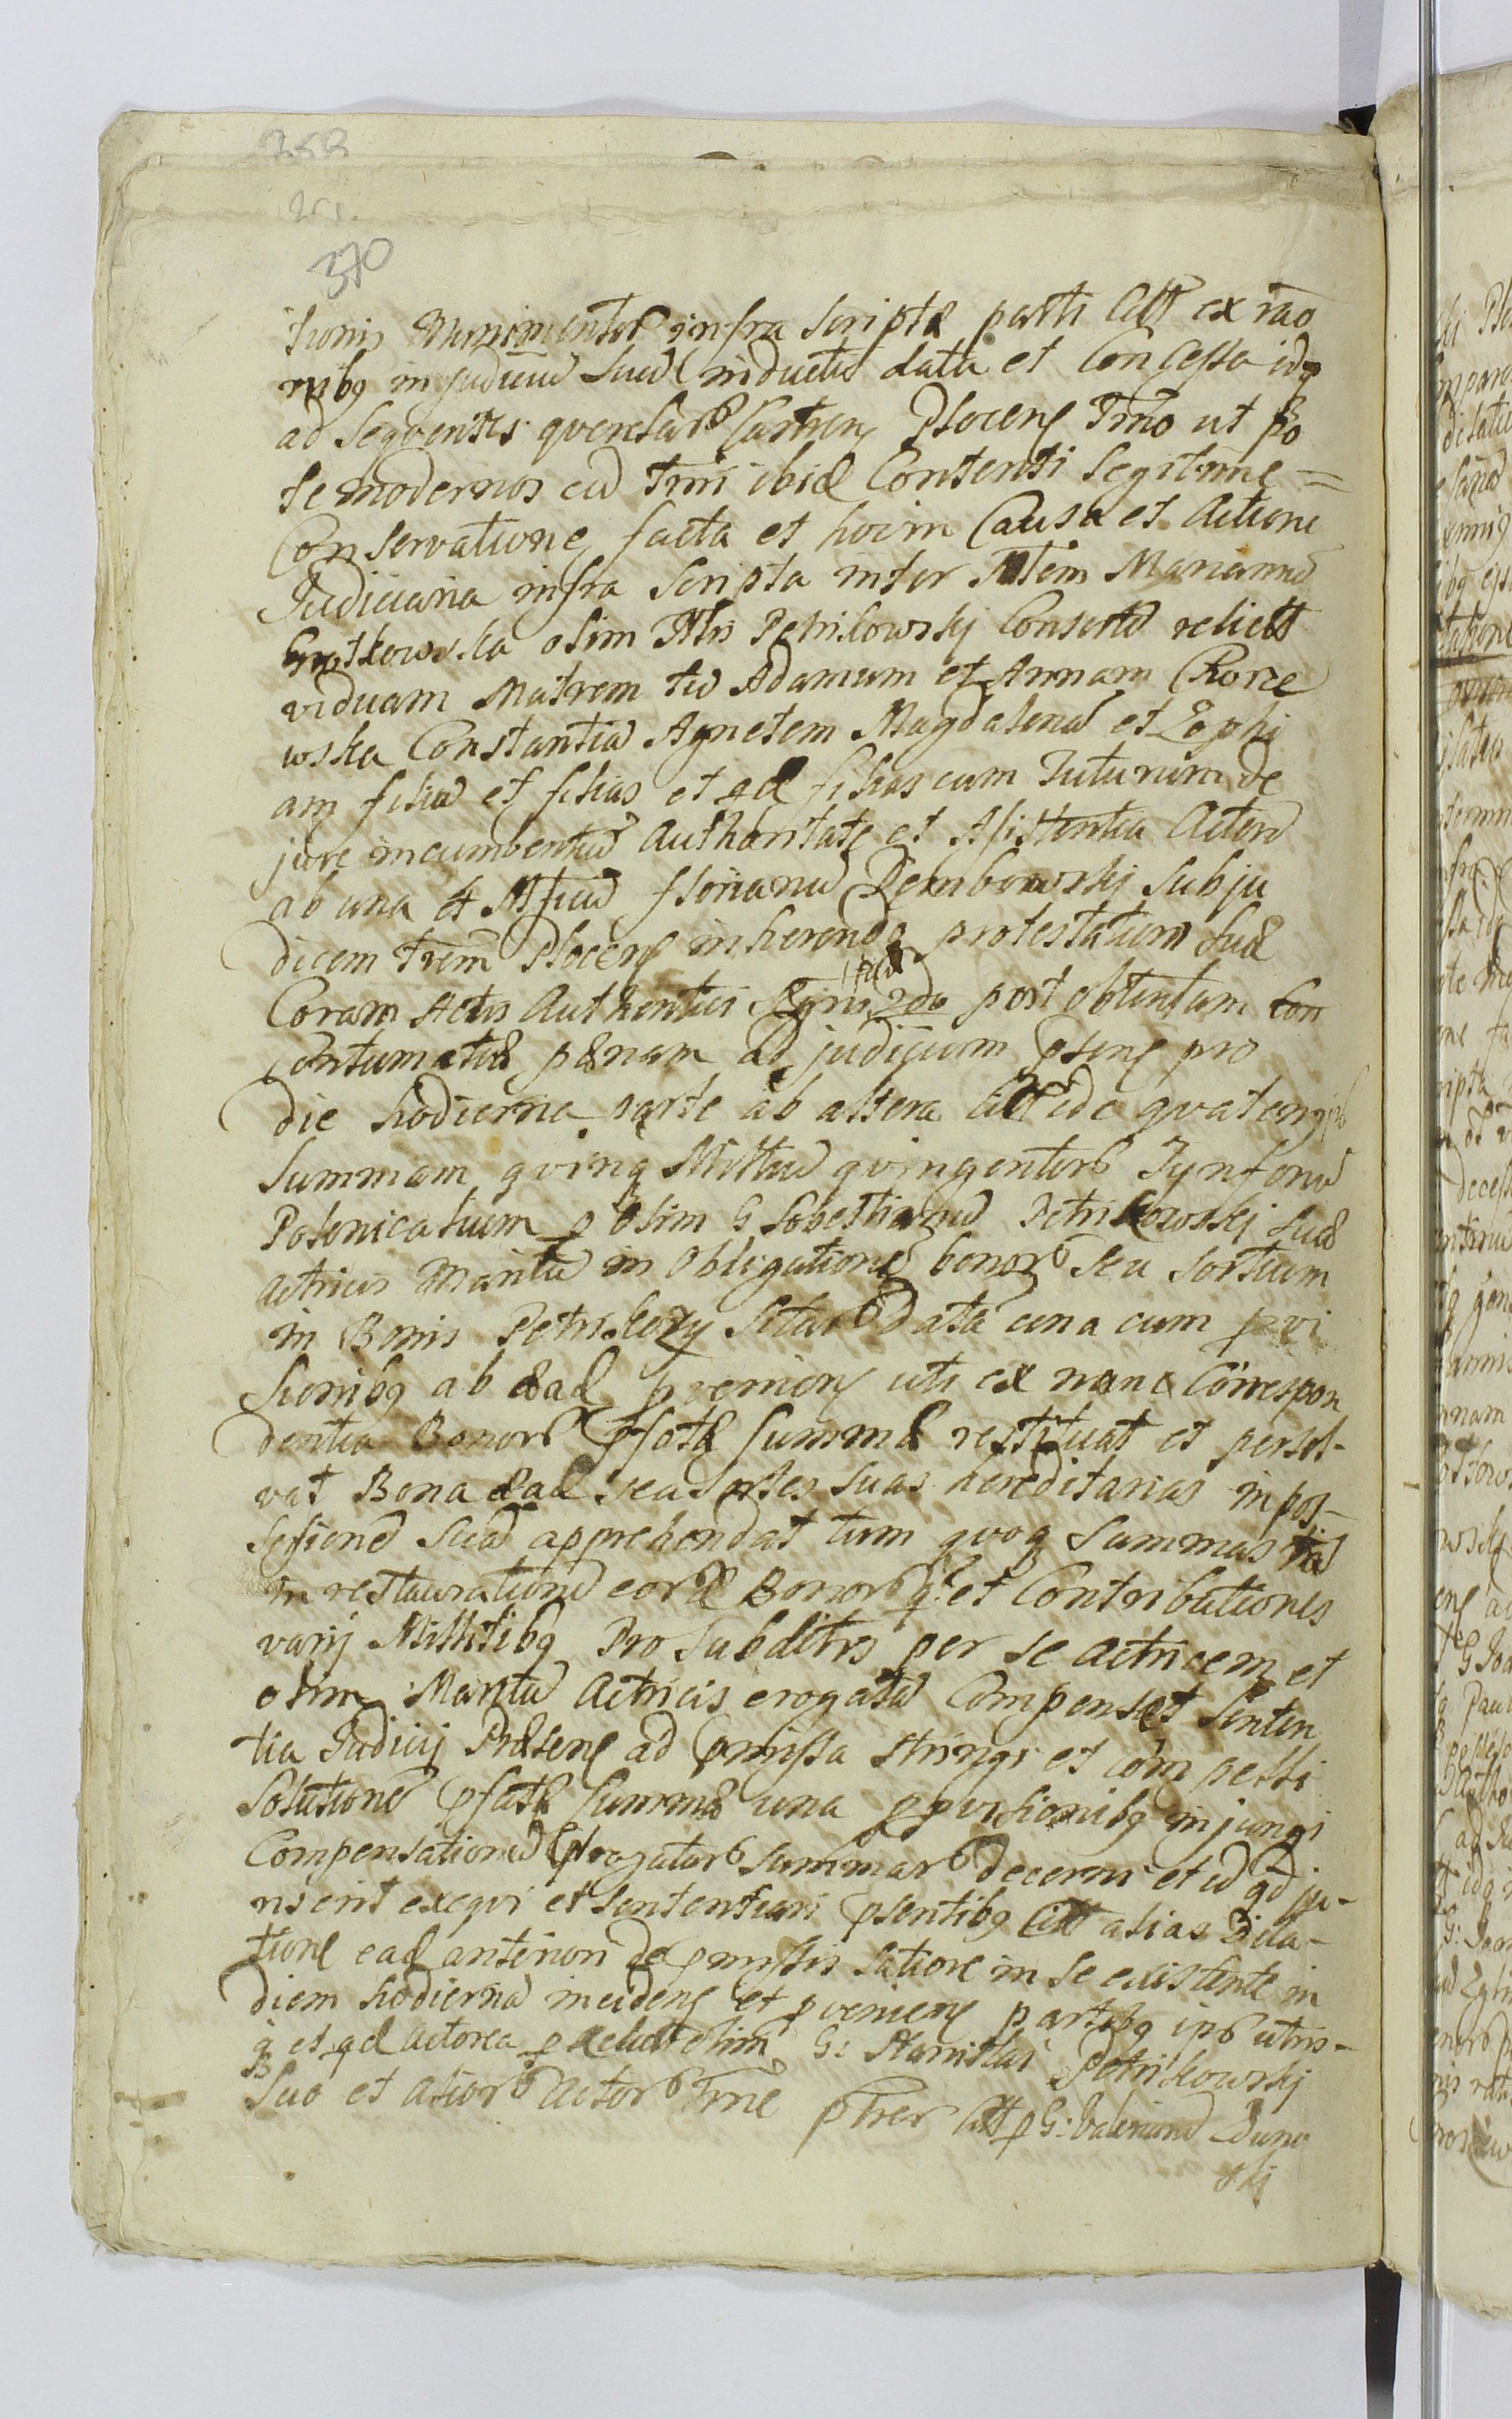 370
tionis Munimentor infra scriptæ parti Citt ex rao
nibq in judiciu suu inductis data et Concessa idq
ad Seqventes qverelar Castren Plocens Trno ut po
te modernos cu Trni ibid Contenti Legitime =
Conservatione facta et hoc in Causa et Actione
Judiciaria infra Scripta inter Mtem Marianna
Grotkowska olim Mtis Petrikowskj Consorte relict
viduam Matrem tu Adamum et Annam
wska Constantia Agnetem Magdalena et Zophi
am filiu et filias et qd filias cum Tutorum de
jure incumbentiu Authoritate et Assistentia Actore
ab una et Mficu Florianu Dembowskj Subju
dicem Trem Plocens inhærendo protestationi suæ
Coram Actis Authenticis post obtentam Con
Contumatiæ pænam ad judicium psens pro
die hodierna parte ab altera Citt ide qvatenq
Summam qvinq Milliu qvingentor Tynforu
Polonicalium p olim G Sobestianu Petrikowskj suu
actricis Maritu in Obligatione bonor seu Sortium
in Bonis Petrikozy Sitar data una cum pvi
sionibq ab ead pvenien uti ex nunc Correspon
dentia Bonor pfatæ Summæ restituat et persol-
vat Bona ead seu Sortes suas hereditarias in pos-
sessione sua apprehendat tum qvoq Summas tá
in restauratione eord Bonor q et Contributiones
varij Militibq pro Subditis per se actricem et
olim Maritu Actricis erogatas Compenset Senten
tia Judicij Præsens ad pmissa stringi et compelli
Solutione pfatæ Summæ una pvisionibq injungi
Compensatione Erogatar Summar decerni et id qd ju-
ris erit exeqvi et Sententiari psentibq Citt alias Dila-
tione ead anteriori de pmissis latiore in se existente in
diem hodierna inciden et pvenien partibq ipis utris-
q et qd Actorea p olim G: Stanislai Petrikowskj
Suo et alior actor Trne pther Citt p G: Valerianu Duno
skj